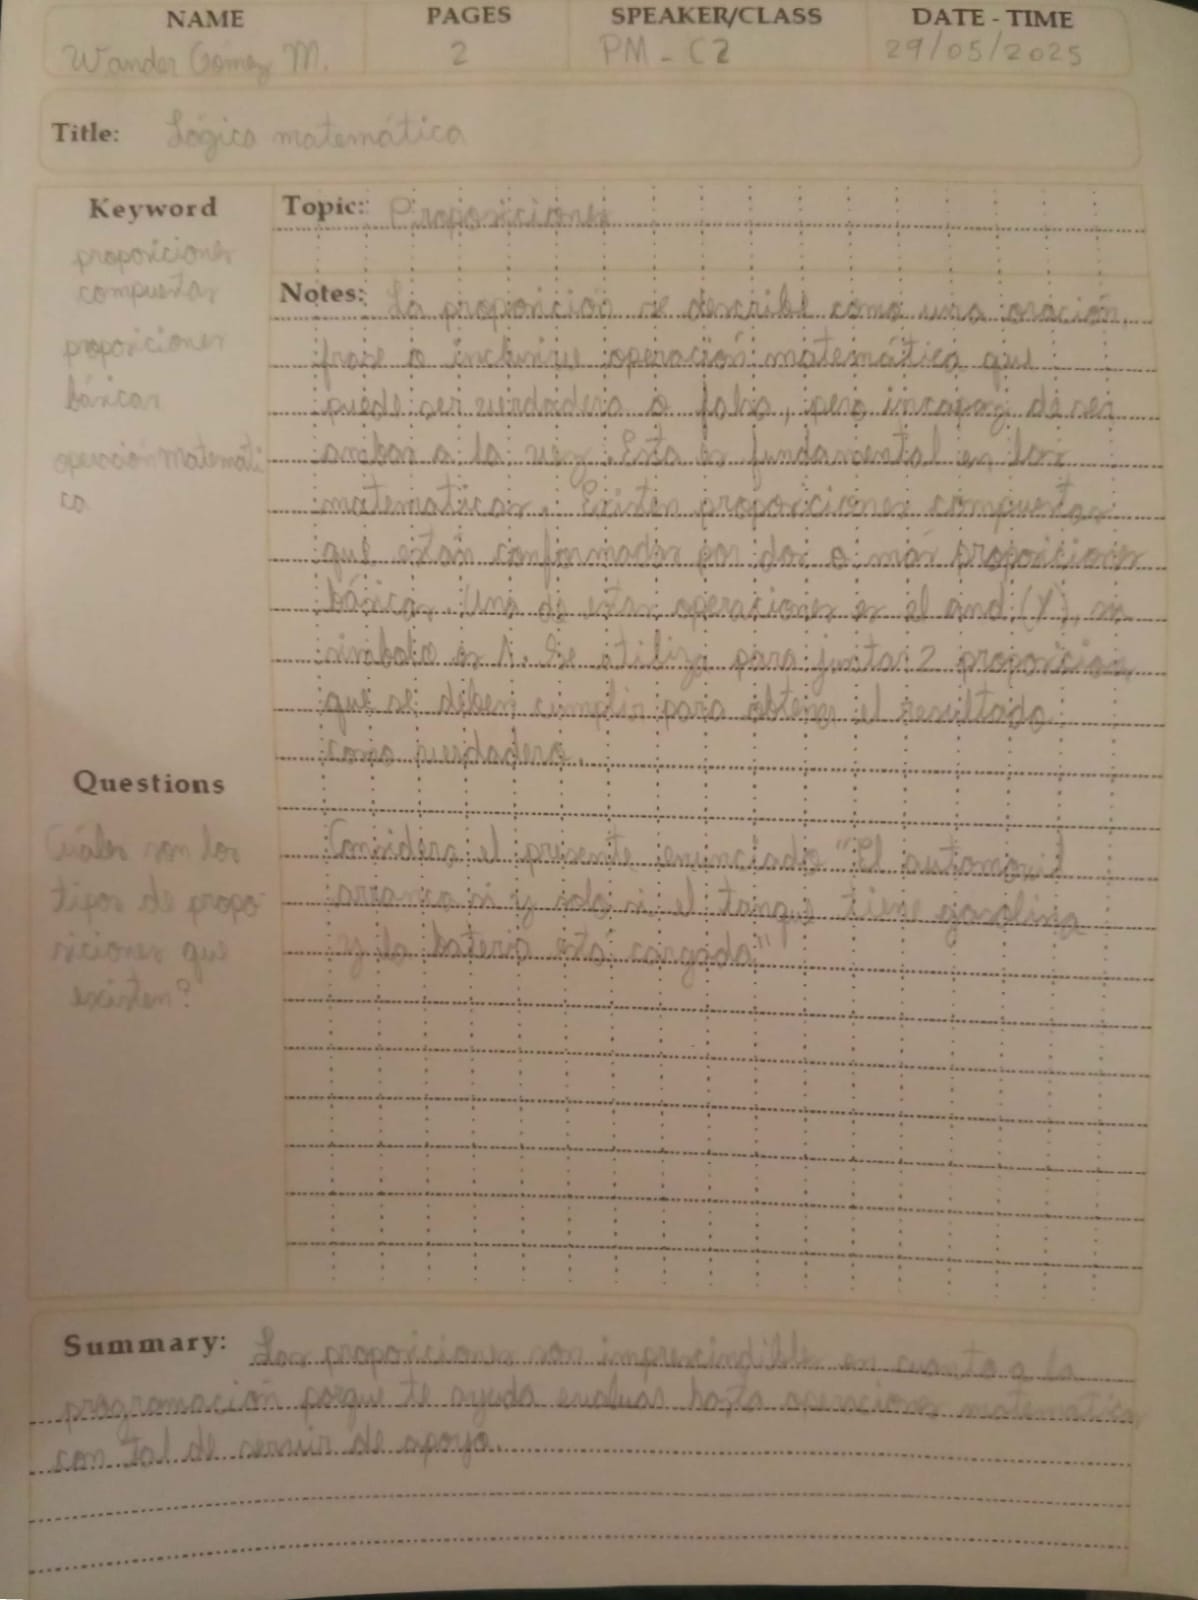 NAME PAGES SPEAKER/CLASS DATE - TIME
Wander Gómez M. 2 PM - C2 29/05/2025
Title: Lógica matemática
Keyword
proposiciones
compuestas
proposiciones
básicas
operación matemáti
ca
Topic: Proposiciones
Notes: La proposición se describe como una oración,
frase o inclusive operación matemática que
puede ser verdadera o falsa, pero incapaz de ser
ambas a la vez. Esta es fundamental en las
matematicas. Existen proposiciones compuestas
que están conformadas por dos o más proposiciones
básicas. Una de estas operaciones es el and (Y), su
simbolo es Λ. Se utiliza para juntar 2 proposicion
que se deben cumplir para obtener el resultado
como verdadero.
Questions
Cuáles son los
tipos de propo-
siciones que
existen?
Considera el presente enunciado "El automovil
arranca si y solo si el tanque tiene gasolina
y la bateria está cargada"
Summary: Las proposiciones son imprescindibles en cuanto a la
programación porque te ayuda evaluar hasta operaciones matematicas
con tal de servir de apoyo.